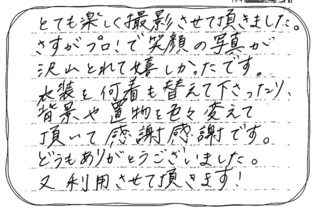 とても楽しく撮影させて頂きました。
さすがプロ!で笑顔の写真が
沢山とれて嬉しかったです。
衣装を何着も替えて下さったり、
背景や置物を色々変えて
頂いて感謝感謝です。
どうもありがとうございました。
又利用させて頂きます!